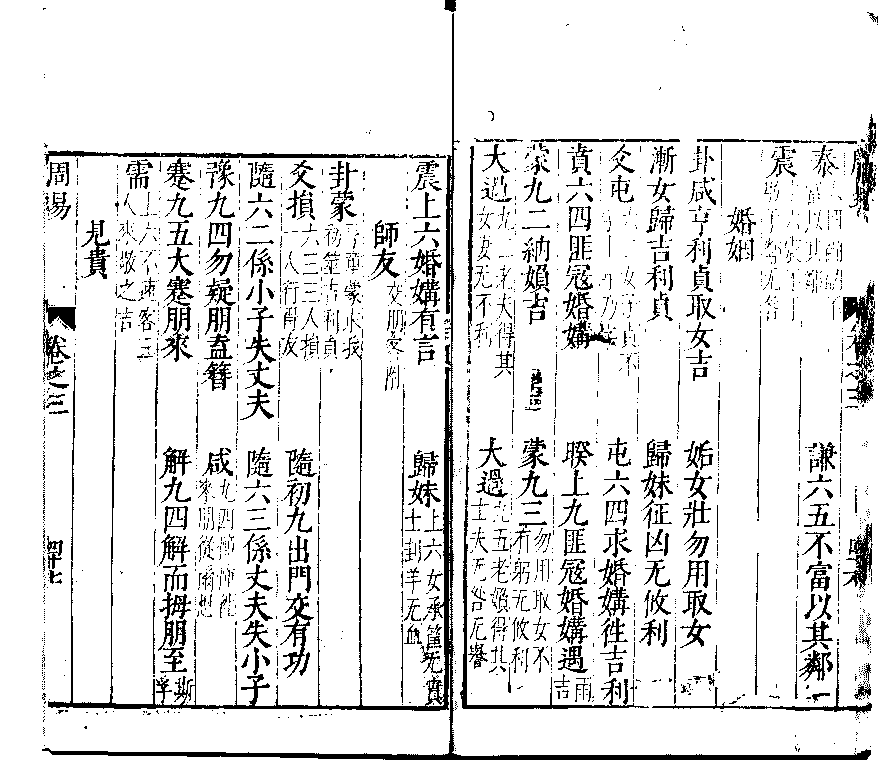 泰
謙六五不富以其鄰
震
婚姻
卦咸亨利貞取女吉　姤女壯勿用取女
漸女歸吉利貞　歸妹征凶无攸利
爻屯　女子貞不
屯六四求婚媾徃吉利
賁六四匪冦婚媾　睽上九匪冦婚媾遇雨吉
蒙九二納媍吉　蒙九三勿用取女不有躬无攸利
大過九二老夫得其女妻无不利　大過九五老媍得其士夫无咎无譽
震上六婚媾有言　歸妹上六女承筐无實士刲羊无血
師友交朋友附
卦蒙　童蒙求我　筮吉利貞
爻損六三三人損一人行得友　隨初九出門交有功
隨六二係小子失丈夫　隨六三係丈夫失小子
豫九四勿疑朋盍簪　咸九四憧憧徃來朋從爾思
蹇九五大蹇朋來　解九四解而拇朋至斯孚
需上六不速客三人來敬之吉
見貴
周易　卷之三　四十七